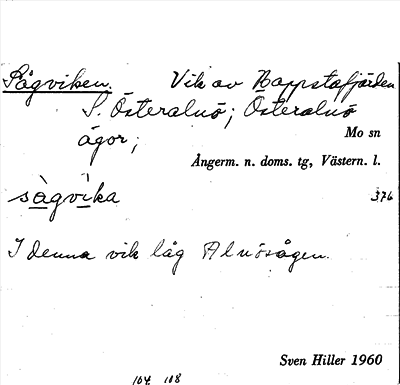 Sågviken. Vik av Happstafjärden
S. Österalnö; Österalnö
ägor;
Mo sn
Ångerm. n. doms. tg, Västern. l.
sàgvìka
376
I denna vik låg Alnösågen.
Sven Hiller 1960
104 108